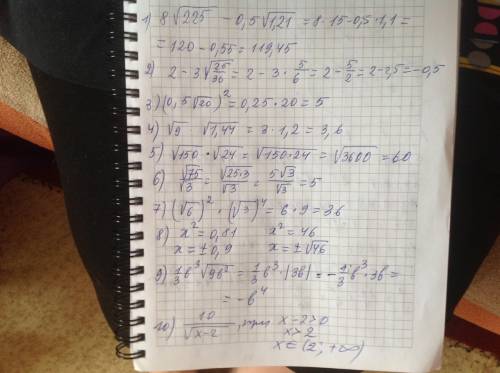 1) 8√225 - 0,5√1,21 = 8·15-0,5·1,1 =
= 120 - 0,55 = 119,45
2) 2 - 3√25/36 = 2 - 3·5/6 = 2 - 5/2 = 2-2,5 = -0,5
3) (0,5√20)² = 0,25·20 = 5
4) √9 · √1,44 = 3·1,2 = 3,6
5) √150 · √24 = √150·24 = √3600 = 60
6) √75/√3 = √25·3/√3 = 5√3/√3 = 5
7) (√6)² · (√3)⁴ = 6·9 = 36
8) x² = 0,81 x² = 46
x = ±0,9 x = ±√46
9) 1/3 b³ √9b² = 1/3 b³ · |3b| = -1/3 b³ · 3b =
= -b⁴
10) 10/√x-2, при x-2>0
x>2
x∈(2; +∞)